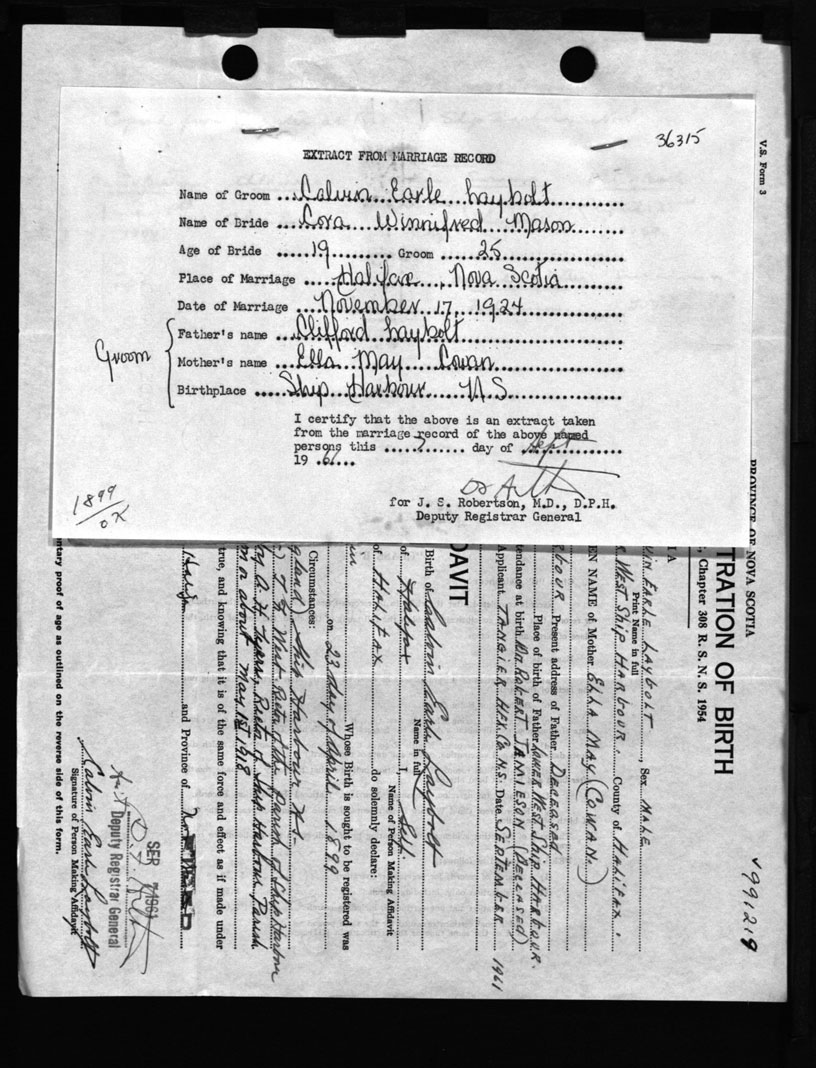 36315
EXTRACT FROM MARRIAGE RECORD
Name of Groom ...Calvin Earle Laybolt
Name of Bride ...Cora Winnifred Mason
Age of Bride .....19......... Groom .....25
Place of Marriage ....Halifax, Nova Scotia
Date of Marriage ...November 17, 1924
Groom
Father's name ...Clifford Laybolt
Mother's name ...Ella May Cowan
Birthplace ....Ship Harbour N.S.
I certify that the above is an extract taken
from the marriage record of the above named
persons this ....7...... day of ..Sept
19 .61...
for J. S. Robertson, M.D., D.P.H.
Deputy Registrar General
1899
V.S. Form 3
PROVINCE OF NOVA SCOTIA
TRATION OF BIRTH
, Chapter 308 R. S. N. S. 1954
V991219
EARLE LAYBOLT, Sex MALE
Print Name in full
WEST SHIP HARBOUR. County of HALIFAX.
EN NAME of Mother ELLA MAY (COWAN)
Present address of Father DECEASED
Place of birth of Father LOWER WEST SHIP HARBOUR.
tendance at birth DR. ROBERT JAMIESON (DECEASED)
Applicant TANGIER HFX. CO. N.S. Date SEPTEMBER 1961
DAVIT
Birth of Calvin Earl Laybolt
Name in full
of Halifax I, Self.
Name of Person Making Affidavit
of Halifax do solemnly declare:
Whose Birth is sought to be registered was
on 23 day of April 1899
Circumstances:
gland) Ship Harbour N.S.
West. Rector of the Parish of Ship Harbour
Rector of Ship Harbour Parish
on or about May 1st 1918
true, and knowing that it is of the same force and effect as if made under
and Province of
SEP 7 1961
Deputy Registrar General
Calvin Earl Laybolt
Signature of Person Making Affidavit
ntary proof of age as outlined on the reverse side of this form.